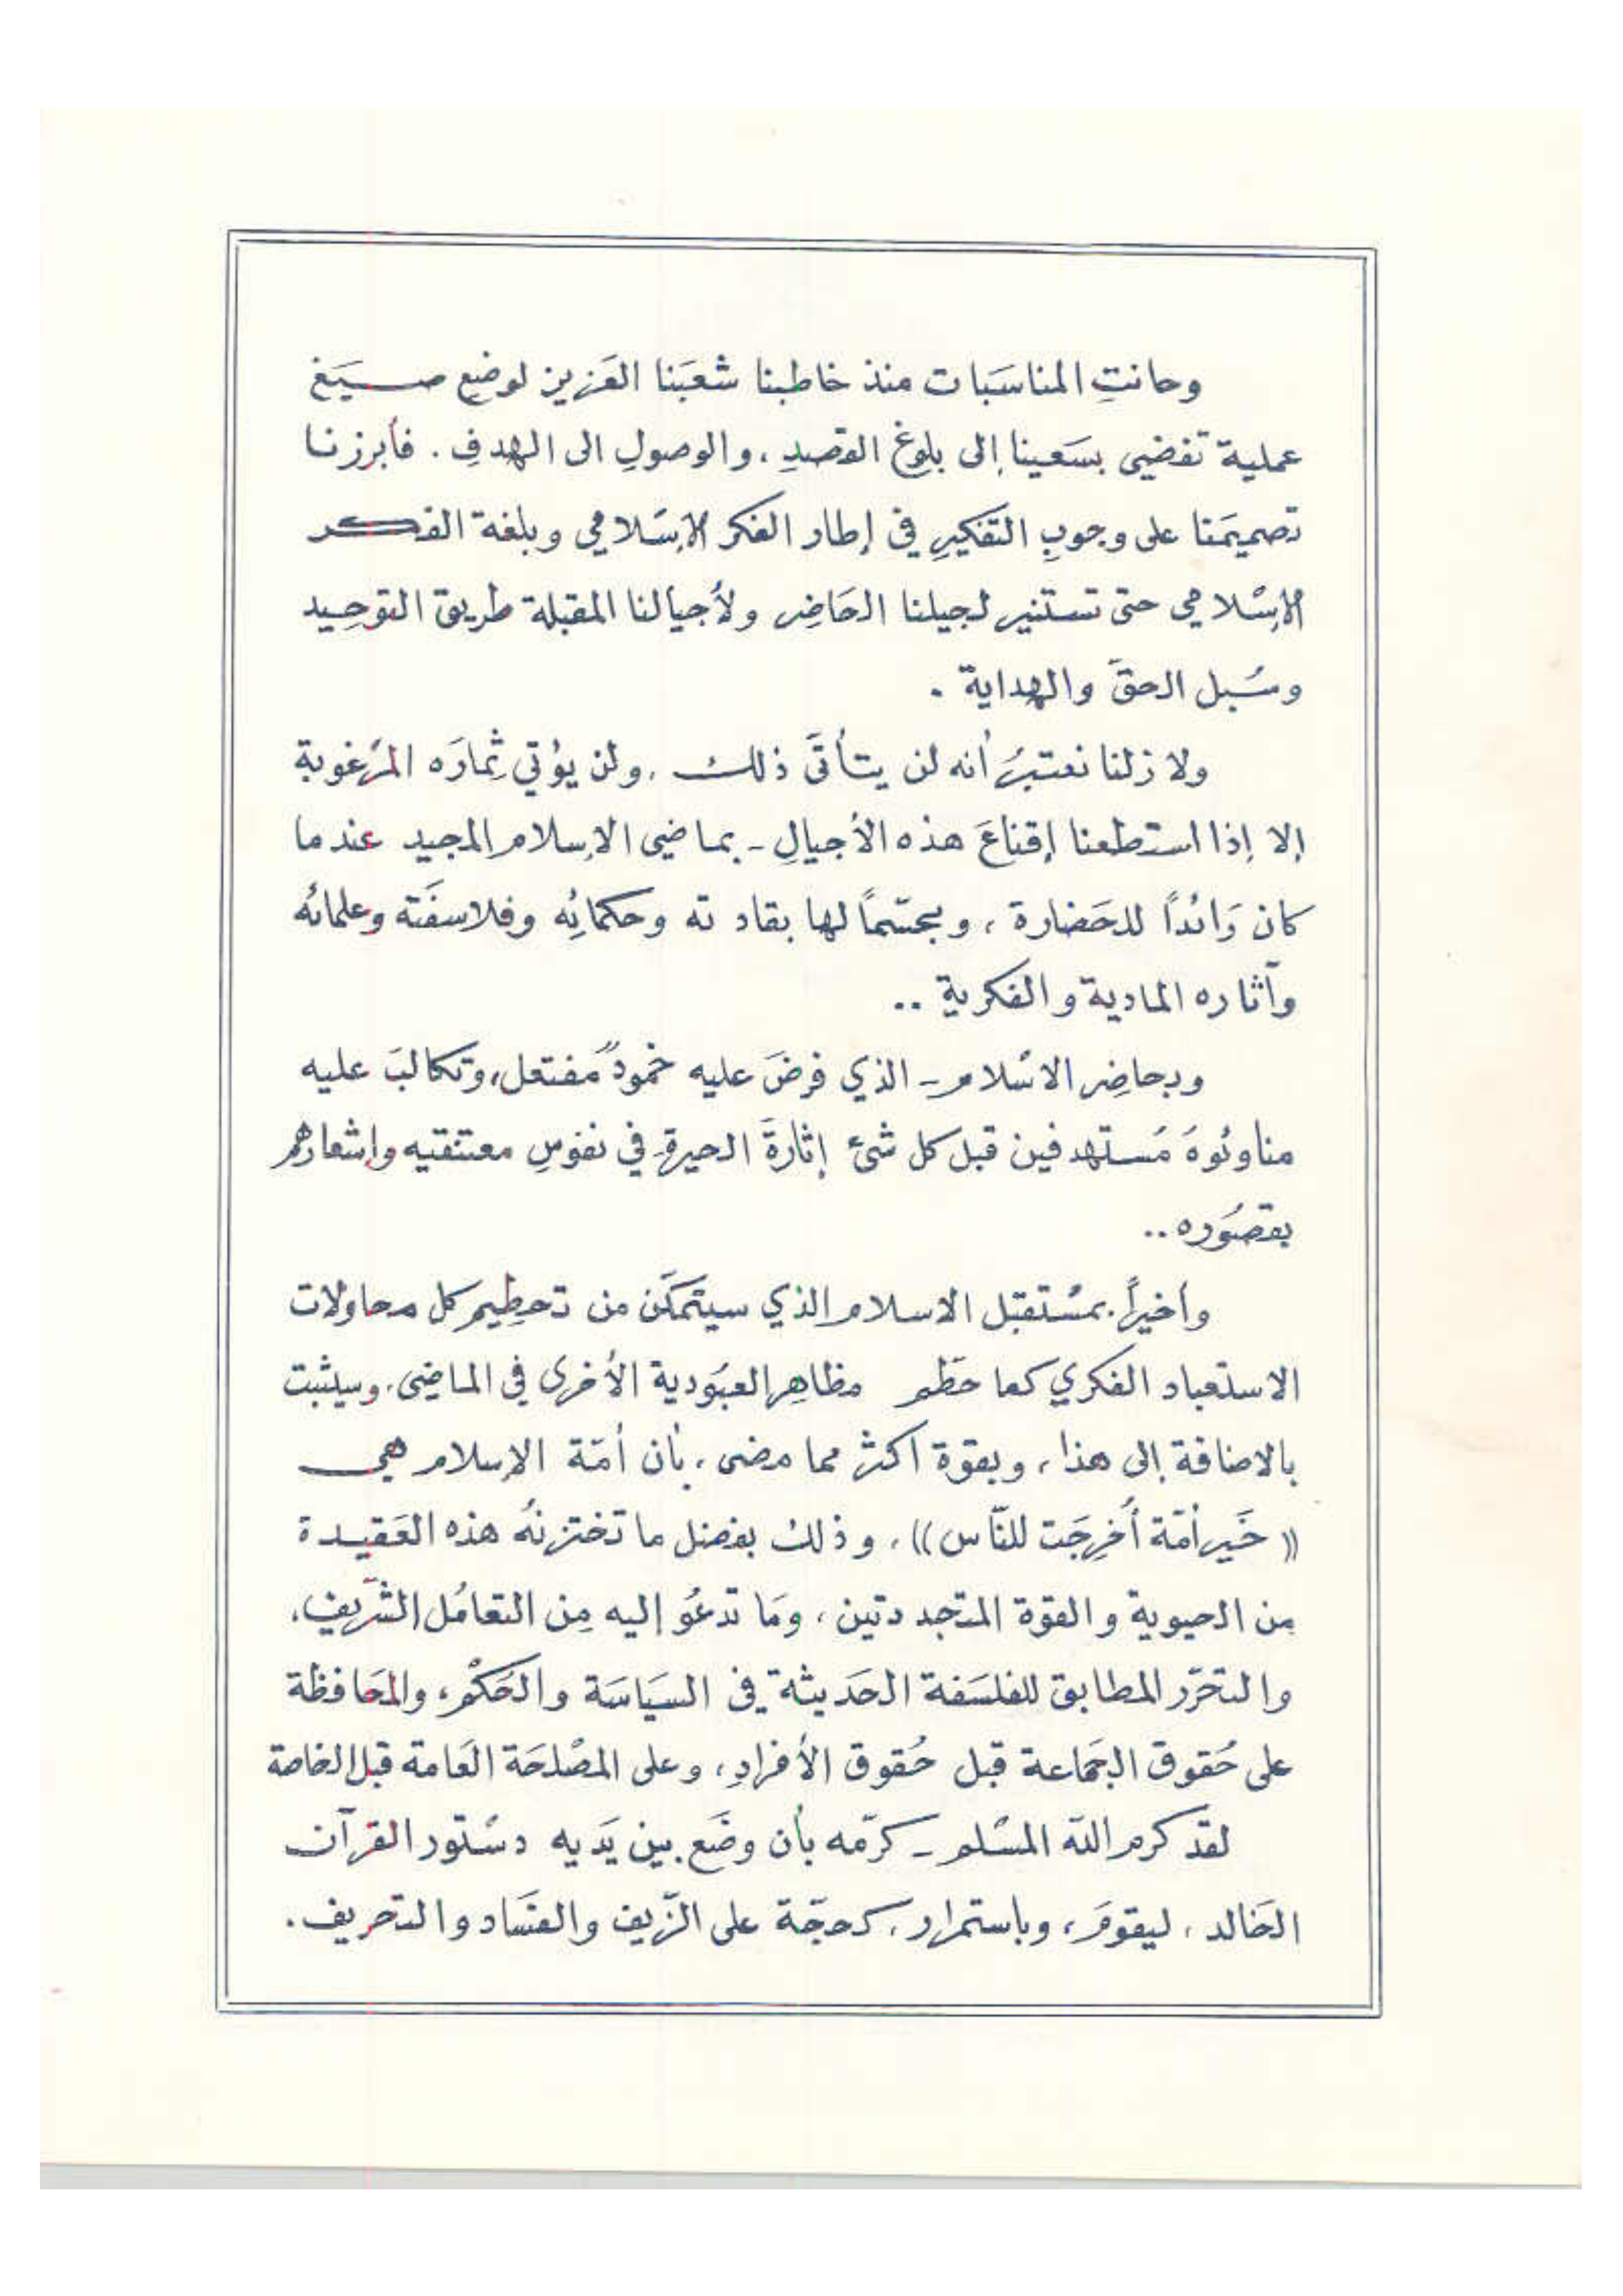 وحانتِ المناسَبات منذ خاطبنا شعبَنا العَزيز لوضع صـيَغ
عملية تفضي بسَعينا إلى بلوغ القصدِ، والوصولِ الى الهدفِ. فأبرزنا
تصميمَنا على وجوبِ التفكيرِ في إطار الفكر الإسْلامي وبلغة الفكر
الإسْلامي حتى تستنير لجيلنا الحَاضِر ولأجيالنا المقبلة طريق التوحِيد
وسُبل الحقّ والهداية .
ولا زلنا نعتبرُ أنه لن يتأتّى ذلك ، ولن يؤتي ثِمارَه المرْغوبة
إلا إذا استطعنا إقناعَ هذه الأجيالِ - بماضي الإسلام المجيد عندما
كان رَائداً للحَضارة ، ومجسّماً لها بقادته وحكمائِه وفلاسفَته وعلمائه
وآثاره المادية والفكرية ..
وبحاضِر الاسْلام - الذي فرضَ عليه خمودٌ مفتعل، وتكالبَ عليه
مناوئوهَ مُستهدفين قبل كل شئ إثارةَ الحيرةِ في نفوسِ معتنقيه وإشعارهم
بقصُوره ..
وأخيراً بمسْتقبل الاسلام الذي سيتمكّن من تحطِيم كل محاولات
الاستعباد الفكري كما حطّم مظاهِر العبُودية الأخرى في الماضِى، وسيثبت
بالاضافة إلى هذا ، وبقوة اكثرْ مما مضى ، بأن أمّة الإسلام هي
(( خَير أمّة أخرِجَت للنّاس )) ، وذلك بفضل ما تختزنهُ هذه العَقيدة
مِن الحيوية والقوة المتجددتين ، ومَا تدعُو إليه مِن التعامُل الشّريف ،
والتحَرّر المطابق للفلسَفة الحَديثة في السيَاسَة والحَكْم ، والمحَافظة
على حُقوق الجَماعة قبل حُقوق الأفرادِ ، وعلى المصْلحَة العَامة قبل الخاصة
لقد كرم الله المسْلم - كرّمه بأن وضَع بين يَديه دسْتور القرآن
الخَالد ، ليقومَ ، وباستمرار ، كحجّة على الزّيف والفسَاد والتحريف .